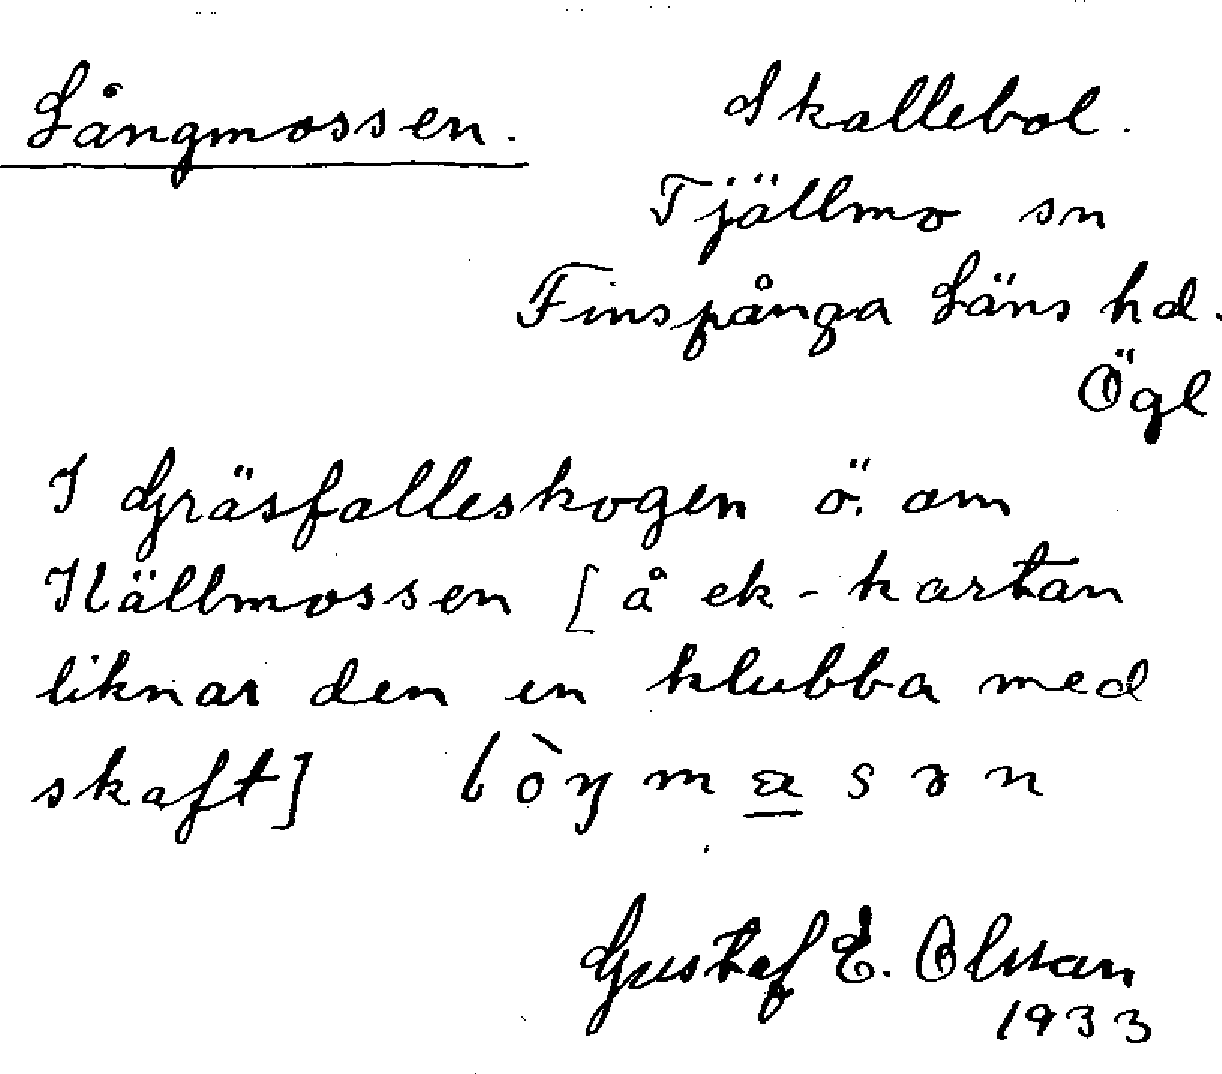 Långmossen. Skallebol.
Tjällmo sn
Finspånga Läns hd.
Ögl
I Gräsfalleskogen ö. om
Källmossen [å ek-kartan
liknar den en klubba med
skaft]
Gustaf E. Olsson
1933